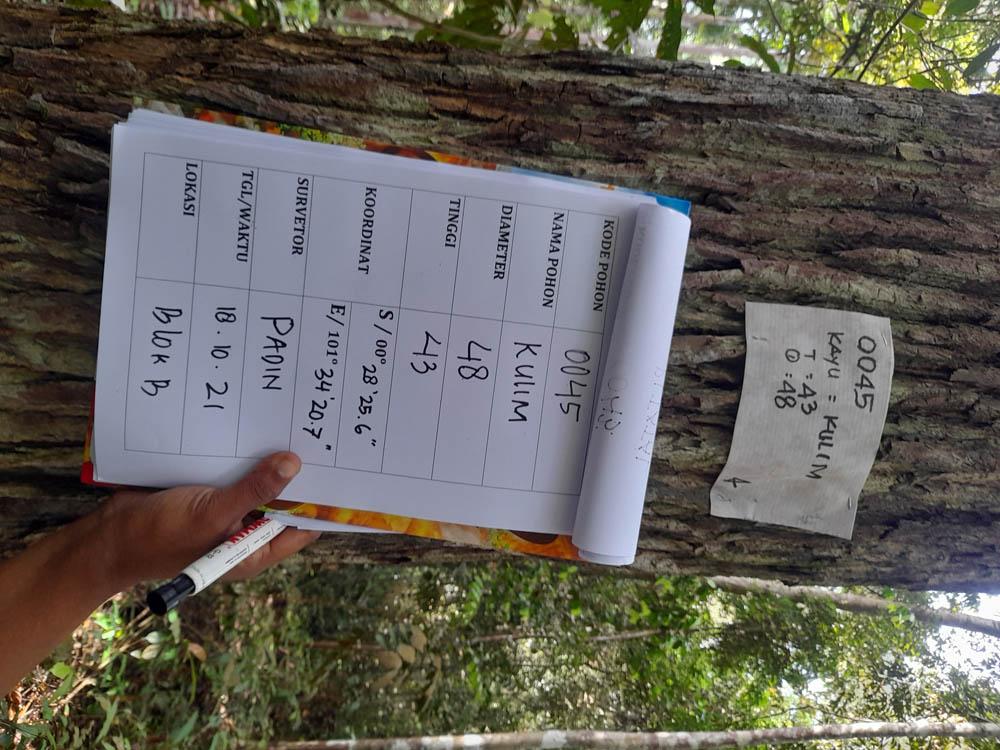 0045
KAYU = KULIM
T : 43
Ⓘ : 48
4
KODE POHON 0045
NAMA POHON KULIM
DIAMETER 48
TINGGI 43
KOORDINAT S / 00° 28'25.6"
E/ 101° 34'20.7"
SURVETOR PADIN
TGL/WAKTU 18.10.21
LOKASI Blok B